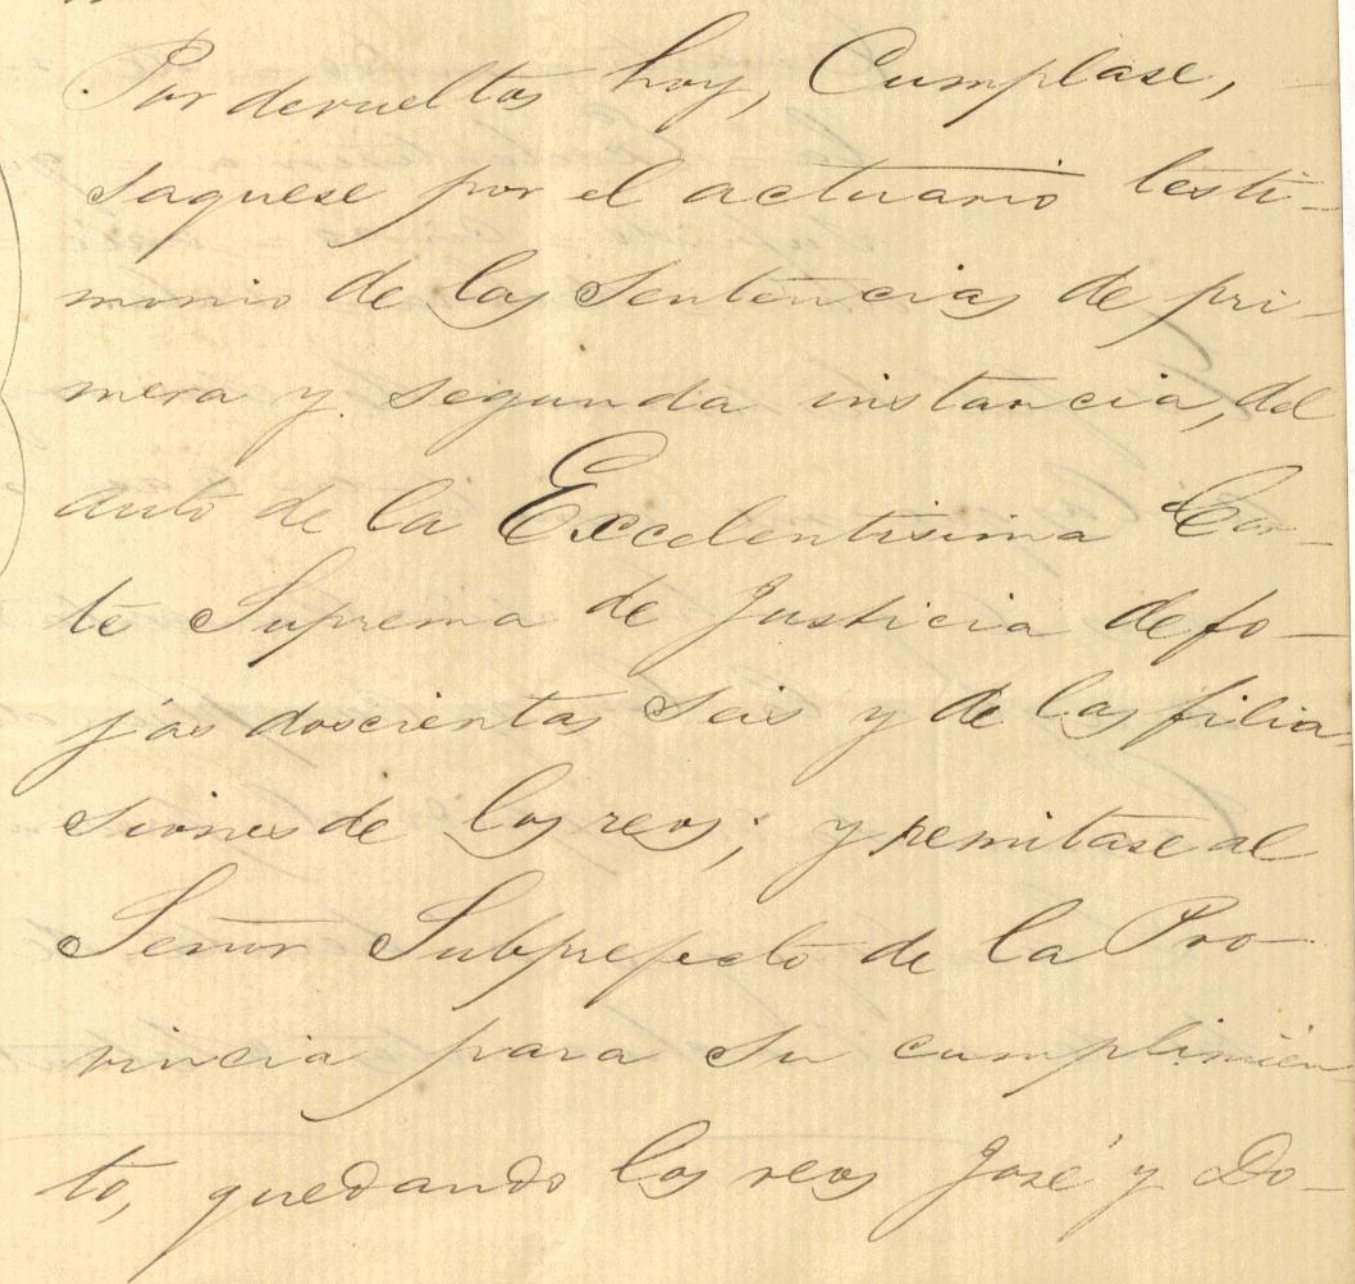 Por devueltos hoy, Cumplase,
saquese por el actuario testi-
monio de las Sentencias de pri-
mera y segunda instancia, del
auto de la Excelentisima Cor-
te Suprema de Justicia de fo-
jas doscientas seis y de las filia-
siones de los reos; y remitase al
Señor Subprefecto de la Pro-
vincia para su cumplimien-
to, quedando los reos José y Do-